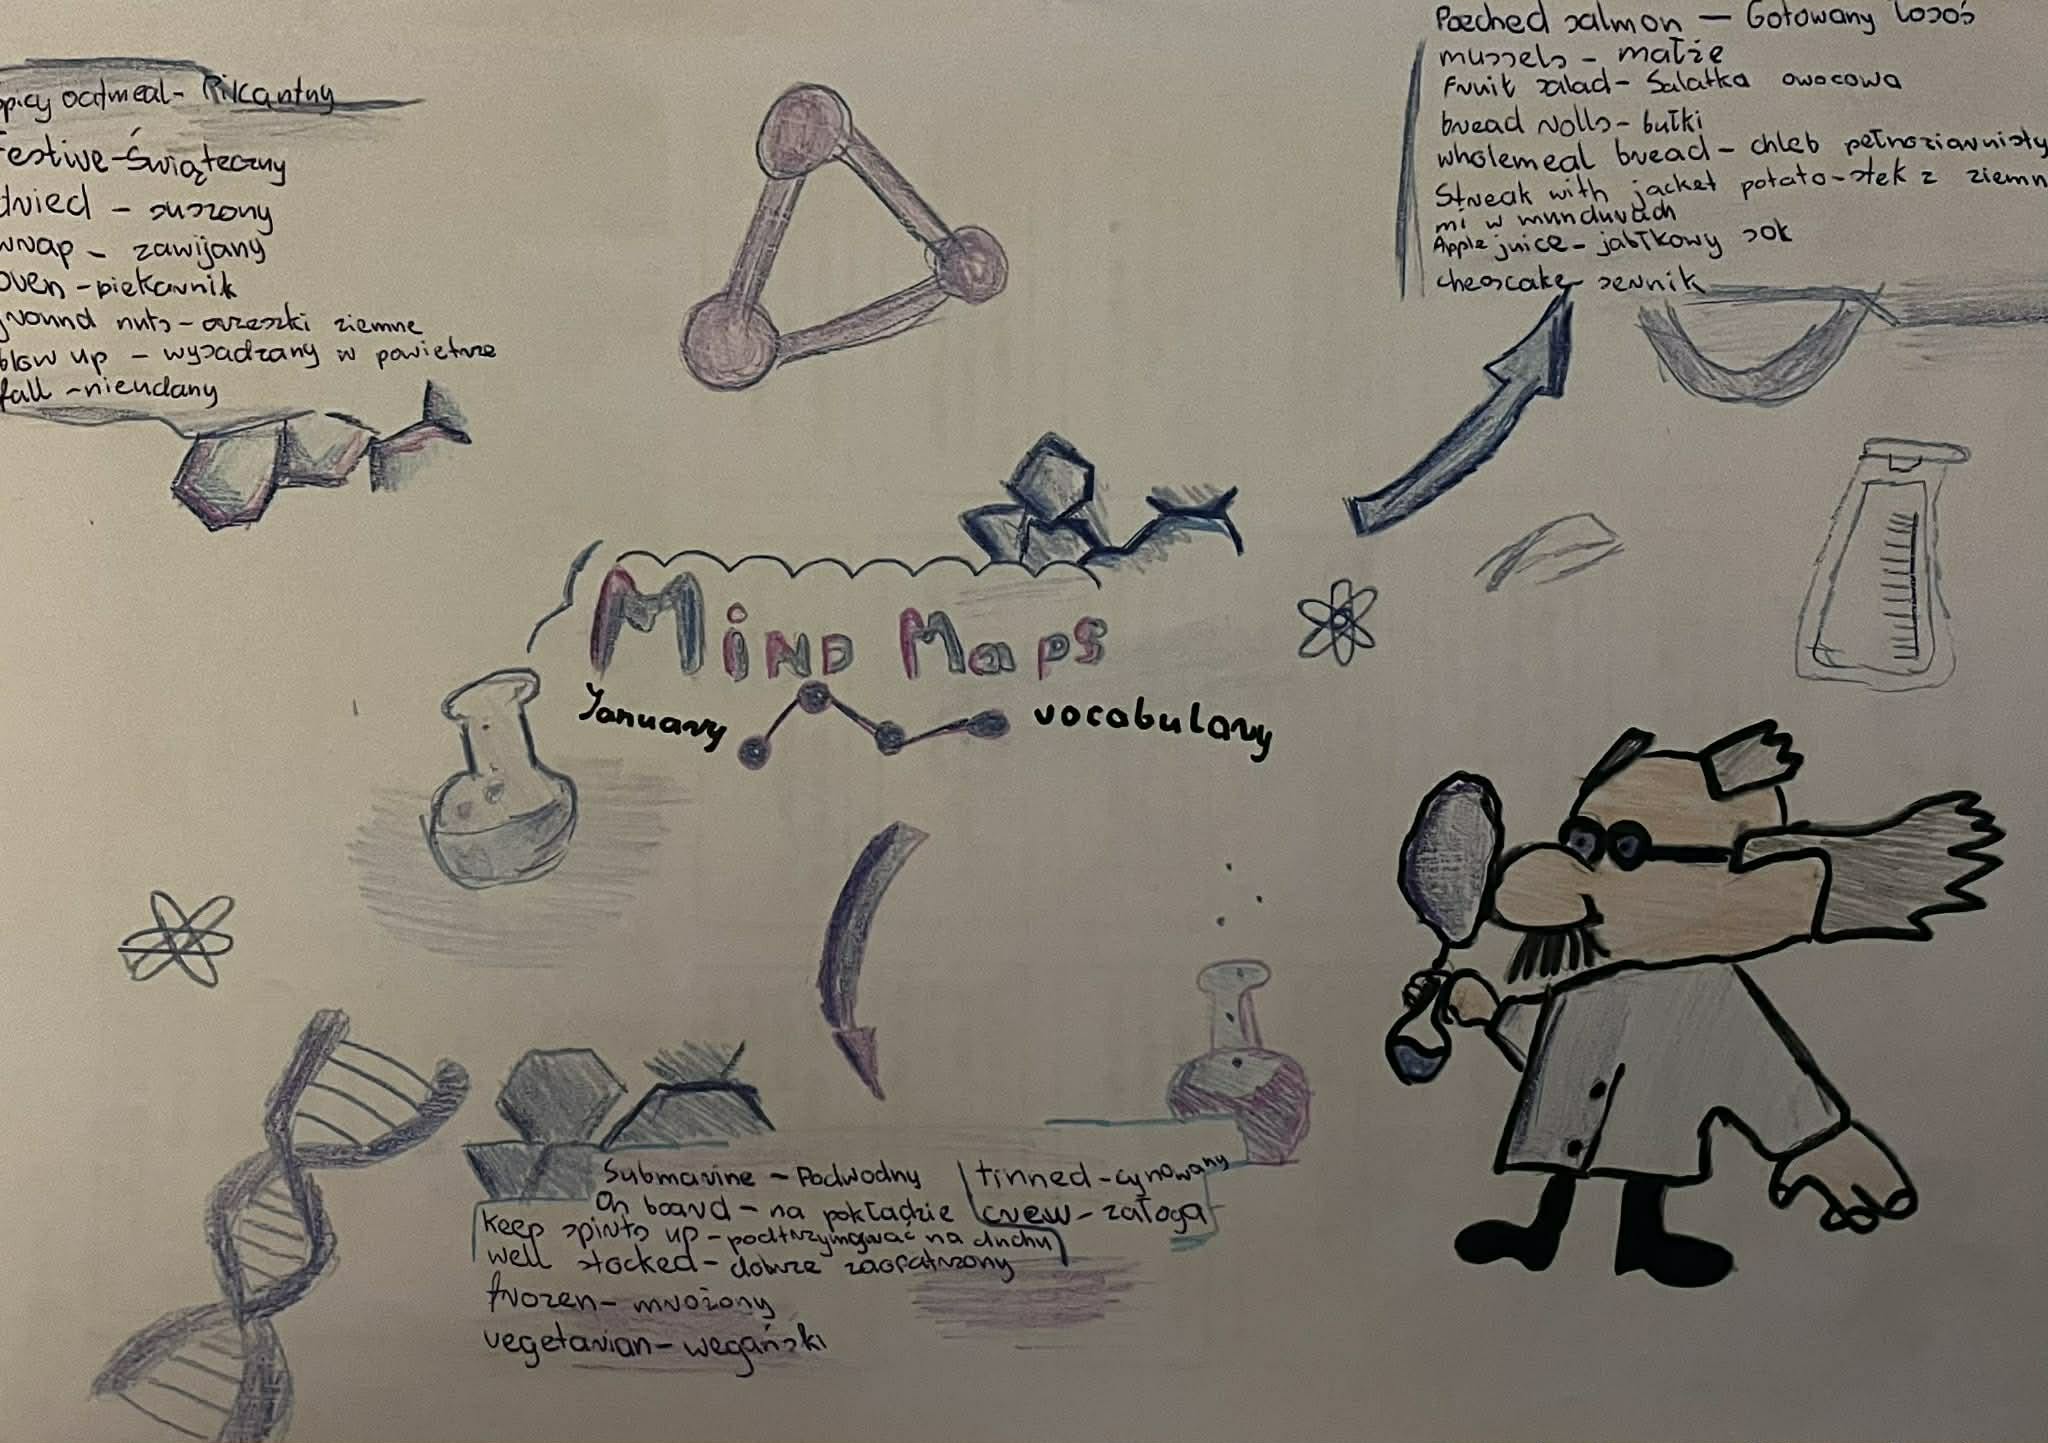 spicy oatmeal- Pikantny
festive-Świąteczny
dried - suszony
wrap - zawijany
oven -piekarnik
ground nuts-orzeszki ziemne
blow up - wysadzany w powietrze
fall -nieudany
Poeched salmon — Gotowany łosoś
mussels - małże
Fruit salad- Sałatka owocowa
bread rolls- bułki
wholemeal bread- chleb pełnoziarnisty
Streak with jacket potato-stek z ziemn
mi w mundurach
Apple juice- jabłkowy sok
cheascake- sernik
Mind Maps
January vocabulary
Submarine - Podwodny
On board - na pokładzie
keep spirits up - podtrzymywać na duchu
well stocked- dobrze zaopatrzony
frozen- mrożony
vegetarian- wegański
tinned-cynowany
crew- załoga